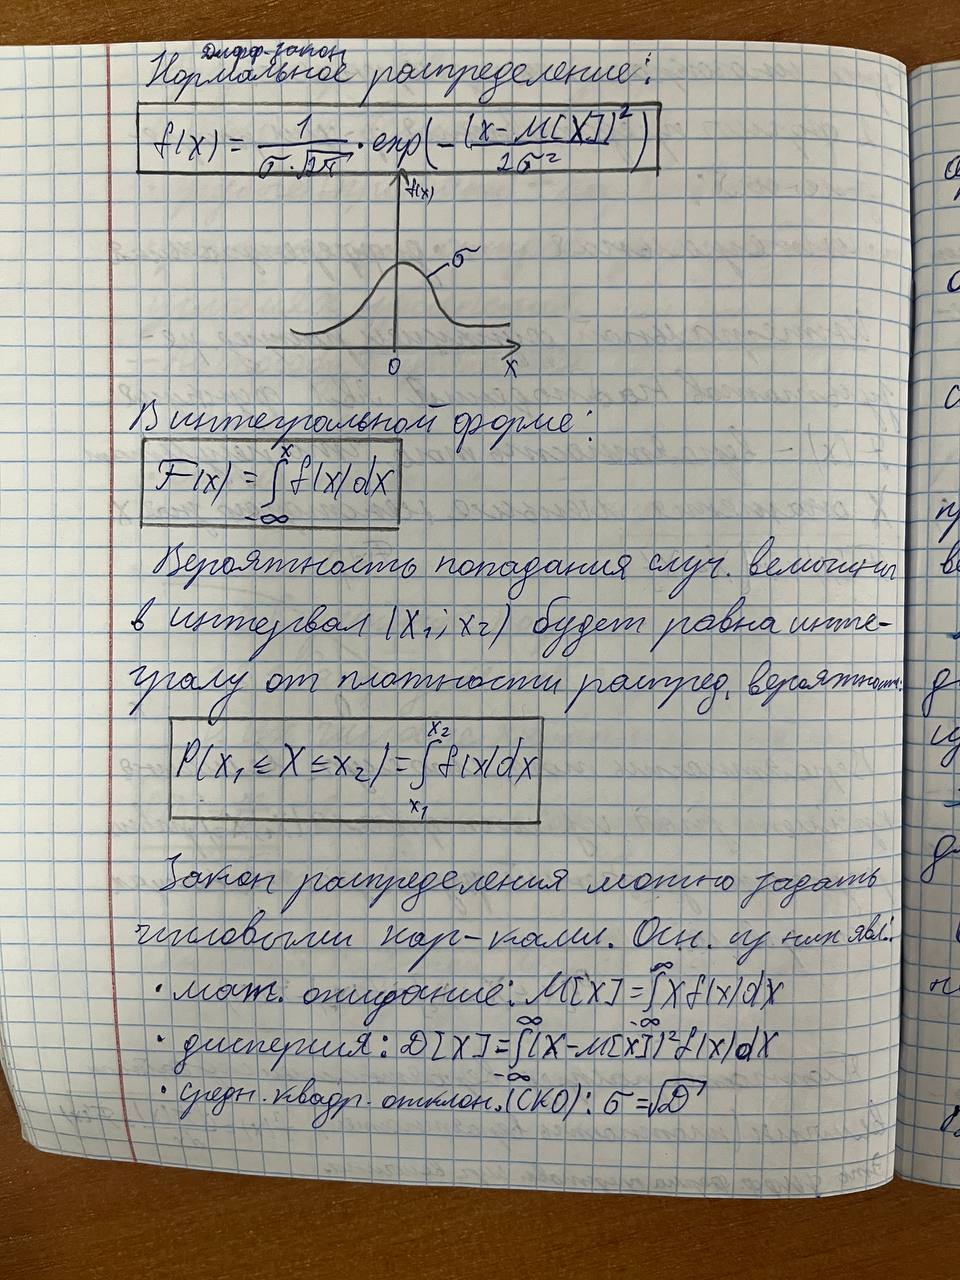 Дифф. закон
Нормальное распределение:
f(x) = 1/(σ·√2π) · exp(-(x-M[X])²/2σ²)
f(x)
σ
0
x
В интегральной форме:
F(x) = ∫_{-∞}^{x} f(x)dx
Вероятность попадания случ. величины
в интервал (x₁; x₂) будет равна инте-
гралу от плотности распред. вероятности:
P(x₁ ≤ X ≤ x₂) = ∫_{x₁}^{x₂} f(x)dx
Закон распределения можно задать
числовыми хар-ками. Осн. из них явл.:
· мат. ожидание: M[X] = ∫_{-∞}^{∞} x f(x)dx
· дисперсия: D[X] = ∫_{-∞}^{∞} (x-M[x])² f(x)dx
· средн. квадр. отклон. (СКО): σ = √D